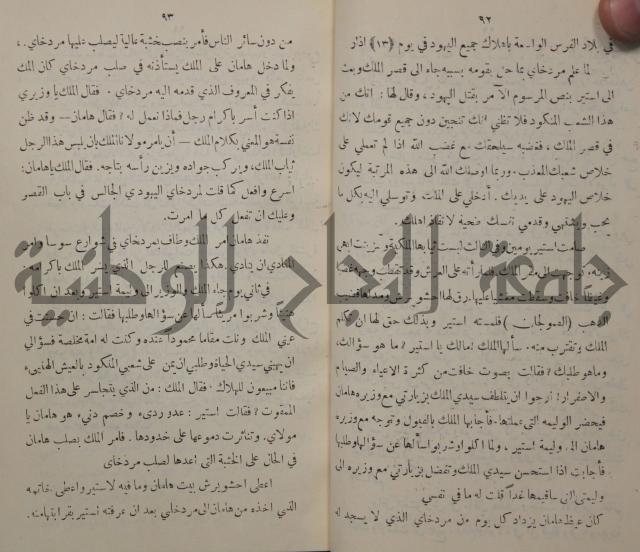 ٩٢
في بلاد الفرس الواسعة باهلاك جميع اليهود في يوم (١٣) اذار
لما علم مردخاي بما حل بقومه بسببه جاء الى قصر الملك وبعث
الى استير بنص المرسوم الآمر بقتل اليهود، وقال لها: انك من
هذا الشعب المنكود فلا تظني انك تنجين دون جميع قومك لانك
في قصر الملك، فغضبه سيلحقك مع غضب الله اذا لم تعملي على
خلاص شعبك المعذب. وربما اوصلك الله الى هذه المرتبة ليكون
خلاص اليهود على يديك. أدخلي على الملك وتوسلي اليه بكل ما
يحب ويشتهي وقدمي نفسك ضحية لانقاذ اهلك.
صامت استير يومين وفي الثالث لبست ثيابها الملكية وتزينت ابهى
زينة، توجهت الى مقر الملك، فلما رأته على العرش وقد
خافت وسقطت مغشيا عليها. رق لها احشويرش ومد لها قضيب
الذهب (الصولجان) فلمسته استير وبذلك حق لها ان تكلم
الملك وتقترب منه. سألها الملك: مالك يا استير؟ ما هو سؤالك،
وما هو طلبك؟ فقالت بصوت خافت من كثرة الاعياء والصيام
والاصفرار: ارجوا ان يتلطف سيدي الملك بزيارتي مع وزيره هامان
فيحضر الوليمة التي عملتها. فأجابها الملك بالقبول وتوجه مع وزيره
هامان الى وليمة استير، ولما اكلوا وشربوا سألها عن سؤالها وطلبها
فأجابت اذا استحسن سيدي الملك وتفضل بزيارتي مع وزيره الى
وليمتي التي سأقيمها غداً قلت له ما في نفسي
كان غيظ هامان يزداد كل يوم من مردخاي الذي لا يسجد له
٩٣
من دون سائر الناس فأمر بنصب خشبة عالية ليصلب عليها مردخاي.
ولما دخل هامان على الملك يستأذنه في صلب مردخاي كان الملك
يفكر في المعروف الذي قدمه اليه مردخاي. فقال الملك يا وزيري
اذا كنت أسر باكرام رجل فماذا نعمل له؟ فقال هامان -- وقد ظن
نفسه هو المعني بكلام الملك -- أن يأمر مولانا الملك بان يلبس هذا الرجل
ثياب الملك، ويركب جواده ويزين رأسه بتاجه. فقال الملك يا هامان:
اسرع وافعل كما قلت لمردخاي اليهودي الجالس في باب القصر
وعليك ان تفعل كل ما امرت.
نفذ هامان امر الملك وطاف بمردخاي في شوارع سوسا وامر
المنادي ان ينادي. هكذا يصنع للرجل الذي يسر الملك باكرامه.
في ثاني يوم جاء الملك والوزير الى وليمة استير وبعد ان اكلوا
هنيئا وشربوا مريئا سألها عن سؤالها وطلبها فقالت: ان في
عيني الملك ونلت مقاما محموداً عنده وكنت له امة مخلصة فسؤالي
ان يهبني سيدي الحياة وطلبي ان يمن على شعبي المنكود بالعيش الهنيء
فاننا مبيعون للهلاك. فقال الملك: من الذي يتجاسر على هذا الفعل
الممقوت؟ فقالت استير: عدو ردىء وخصم دنيء هو هامان يا
مولاي. وتناثرت دموعها على خدودها. فامر الملك بصلب هامان
في الحال على الخشبة التي اعدها لصلب مردخاي
اعطى احشويرش بيت هامان وما فيه لاستير واعطى خاتمه
الذي اخذه من هامان الى مردخاي بعد ان عرفته استير بقرابتها منه.
جامعة النجاح الوطنية